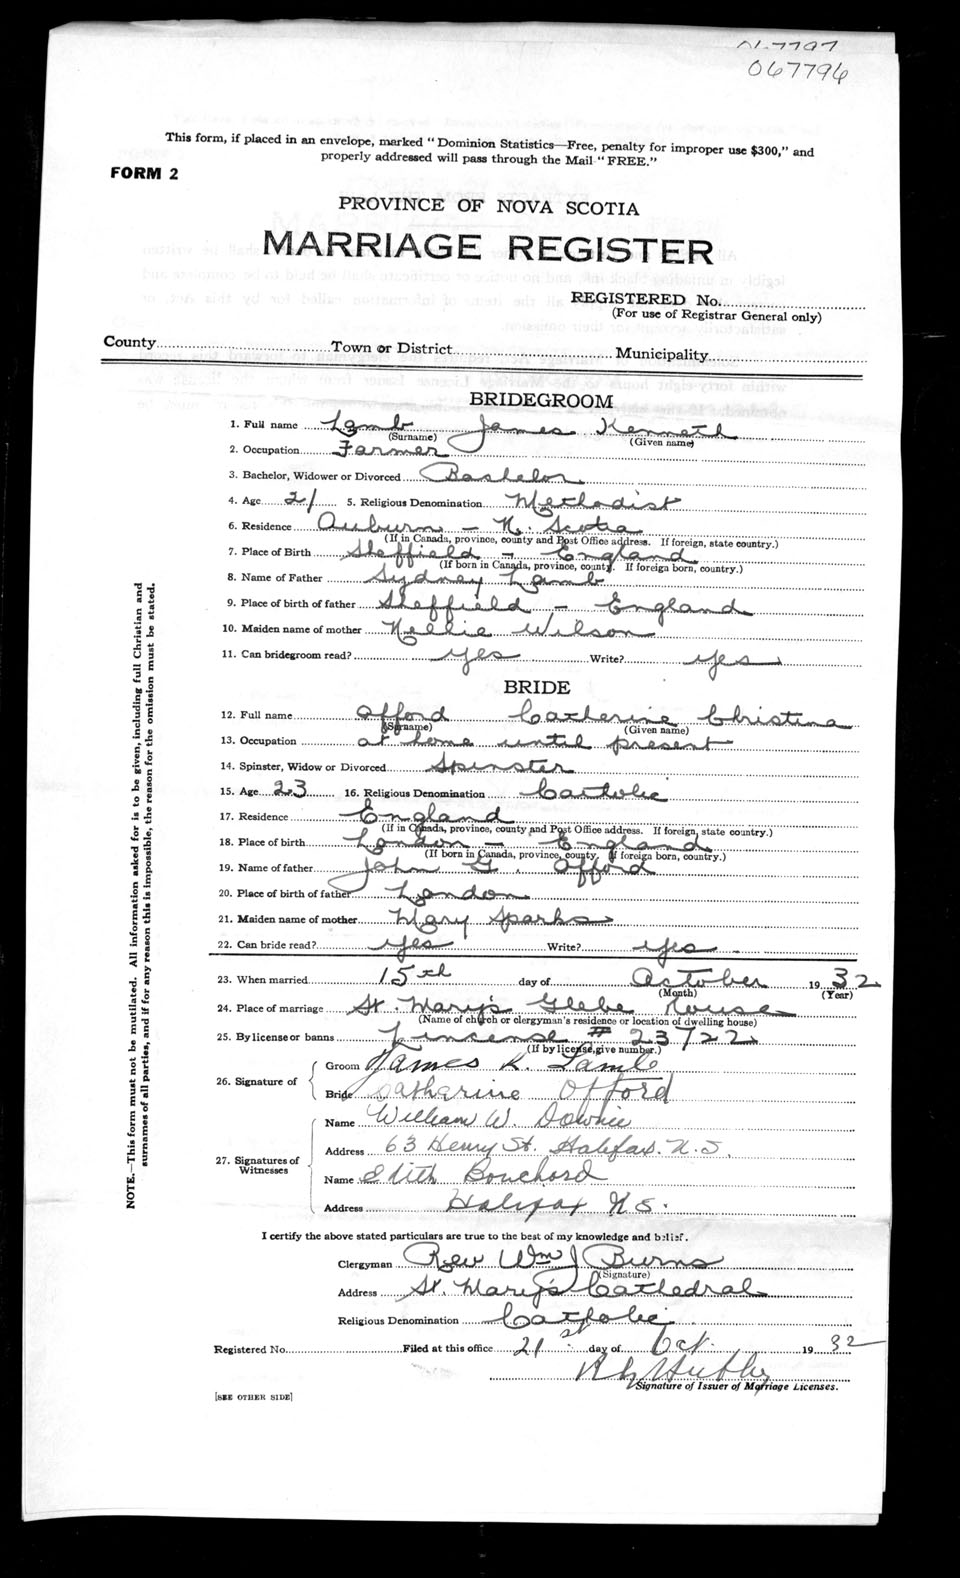 067796
This form, if placed in an envelope, marked "Dominion Statistics—Free, penalty for improper use $300," and
properly addressed will pass through the Mail "FREE."
FORM 2
PROVINCE OF NOVA SCOTIA
MARRIAGE REGISTER
REGISTERED No.
(For use of Registrar General only)
County Town or District Municipality
BRIDEGROOM
1. Full name Lamb James Kenneth
(Surname) (Given name)
2. Occupation Farmer
3. Bachelor, Widower or Divorced Bachelor
4. Age 21 5. Religious Denomination Methodist
6. Residence Auburn - N. Scotia
(If in Canada, province, county and Post Office address. If foreign, state country.)
7. Place of Birth Sheffield - England
(If born in Canada, province, county. If foreign born, country.)
8. Name of Father Sydney Lamb
9. Place of birth of father Sheffield - England
10. Maiden name of mother Nellie Wilson
11. Can bridegroom read? yes Write? yes
BRIDE
12. Full name Offord Catherine Christina
(Surname) (Given name)
13. Occupation at home until present
14. Spinster, Widow or Divorced Spinster
15. Age 23 16. Religious Denomination Catholic
17. Residence England
(If in Canada, province, county and Post Office address. If foreign, state country.)
18. Place of birth London - England
(If born in Canada, province, county. If foreign born, country.)
19. Name of father John G. Offord
20. Place of birth of father London
21. Maiden name of mother Mary Sparks
22. Can bride read? yes Write? yes
23. When married 15th day of October 1932
(Month) (Year)
24. Place of marriage St. Mary's Glebe House
(Name of church or clergyman's residence or location of dwelling house)
25. By license or banns Lincense # 23722
(If by license, give number.)
26. Signature of
Groom James K. Lamb
Bride Catharine Offord
27. Signatures of Witnesses
Name William W. Downie
Address 63 Henry St. Halifax. N.S.
Name Edith Bouchard
Address Halifax N S.
I certify the above stated particulars are true to the best of my knowledge and belief.
Clergyman Rev Wm J Burns
(Signature)
Address St. Mary's Cathedral
Religious Denomination Catholic
Registered No. Filed at this office 21st day of Oct. 1932
Signature of Issuer of Marriage Licenses.
[SEE OTHER SIDE]
NOTE.—This form must not be mutilated. All information asked for is to be given, including full Christian and
surnames of all parties, and if for any reason this is impossible, the reason for the omission must be stated.